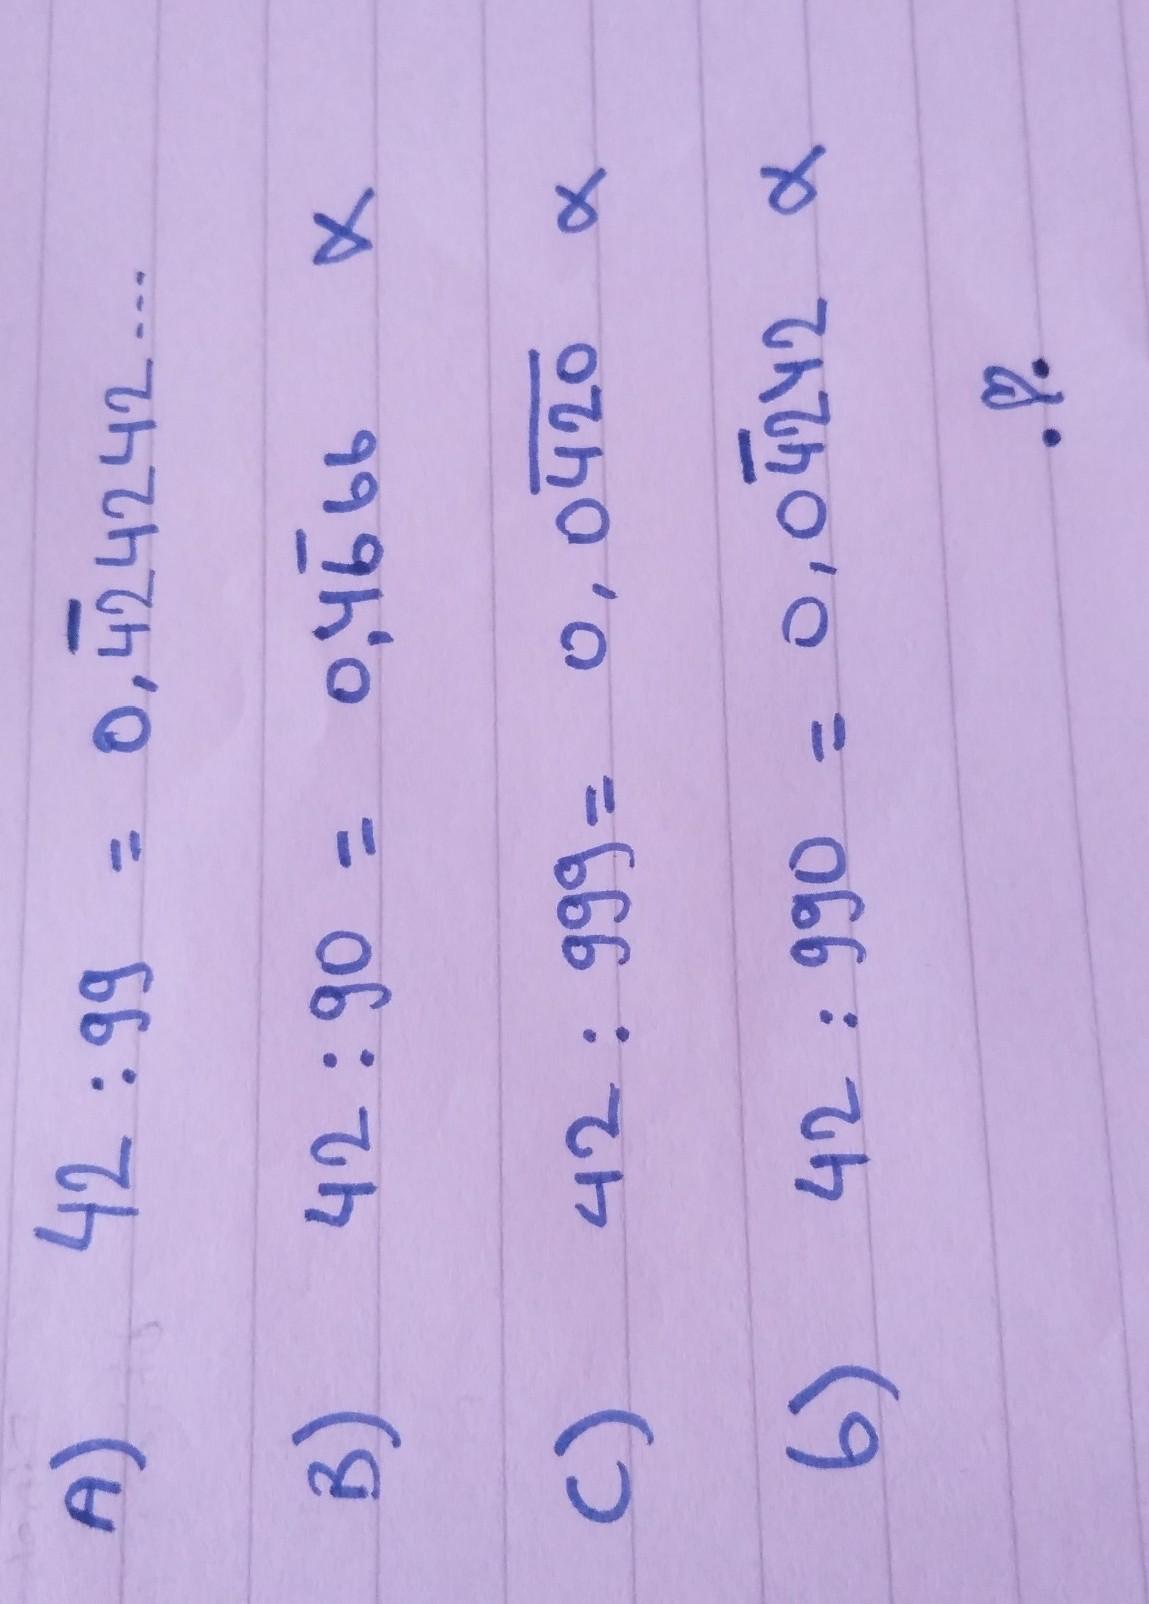 A) 42 : 99 = 0,4̅242424242...
B) 42 : 90 = 0,46̅66 x
C) 42 : 999 = 0,0̅4̅2̅0 x
b) 42 : 990 = 0,04̅242 x